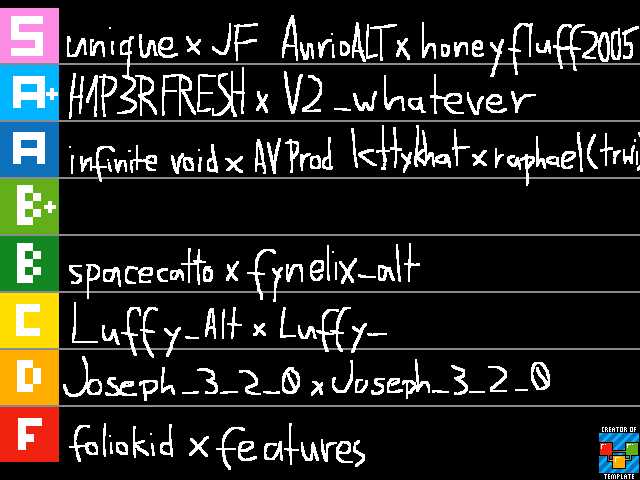 S unique x JF AurioALT x honeyfluff2005
A+ H1P3RFRESH x V2_whatever
A infinite void x AVProd kttykhat x raphael(trwi
B+
B spacecatto x fynelix_alt
C Luffy_Alt x Luffy_
D Joseph_3_2_0 x Joseph_3_2_0
F foliokid x features
CREATOR OF
TEMPLATE